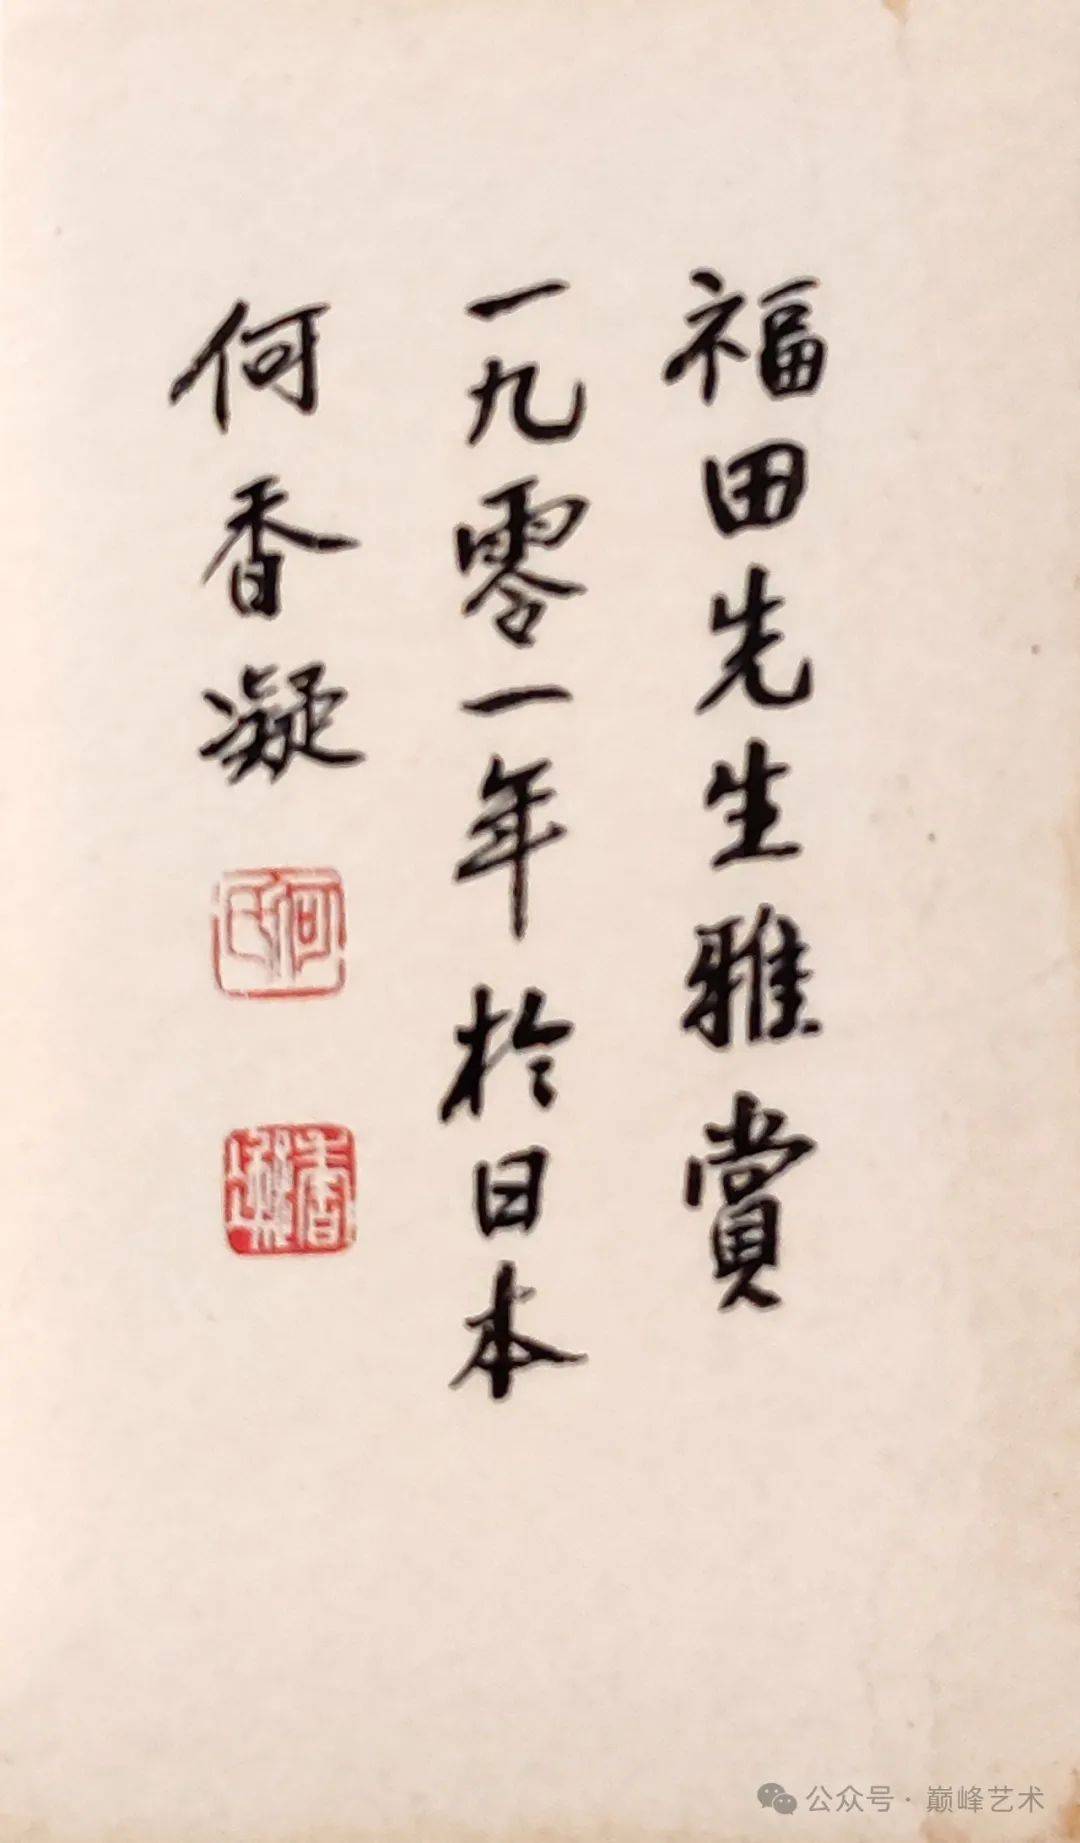 福田先生雅賞
一九零一年於日本
何香凝
何氏
香凝
公众号·巅峰艺术